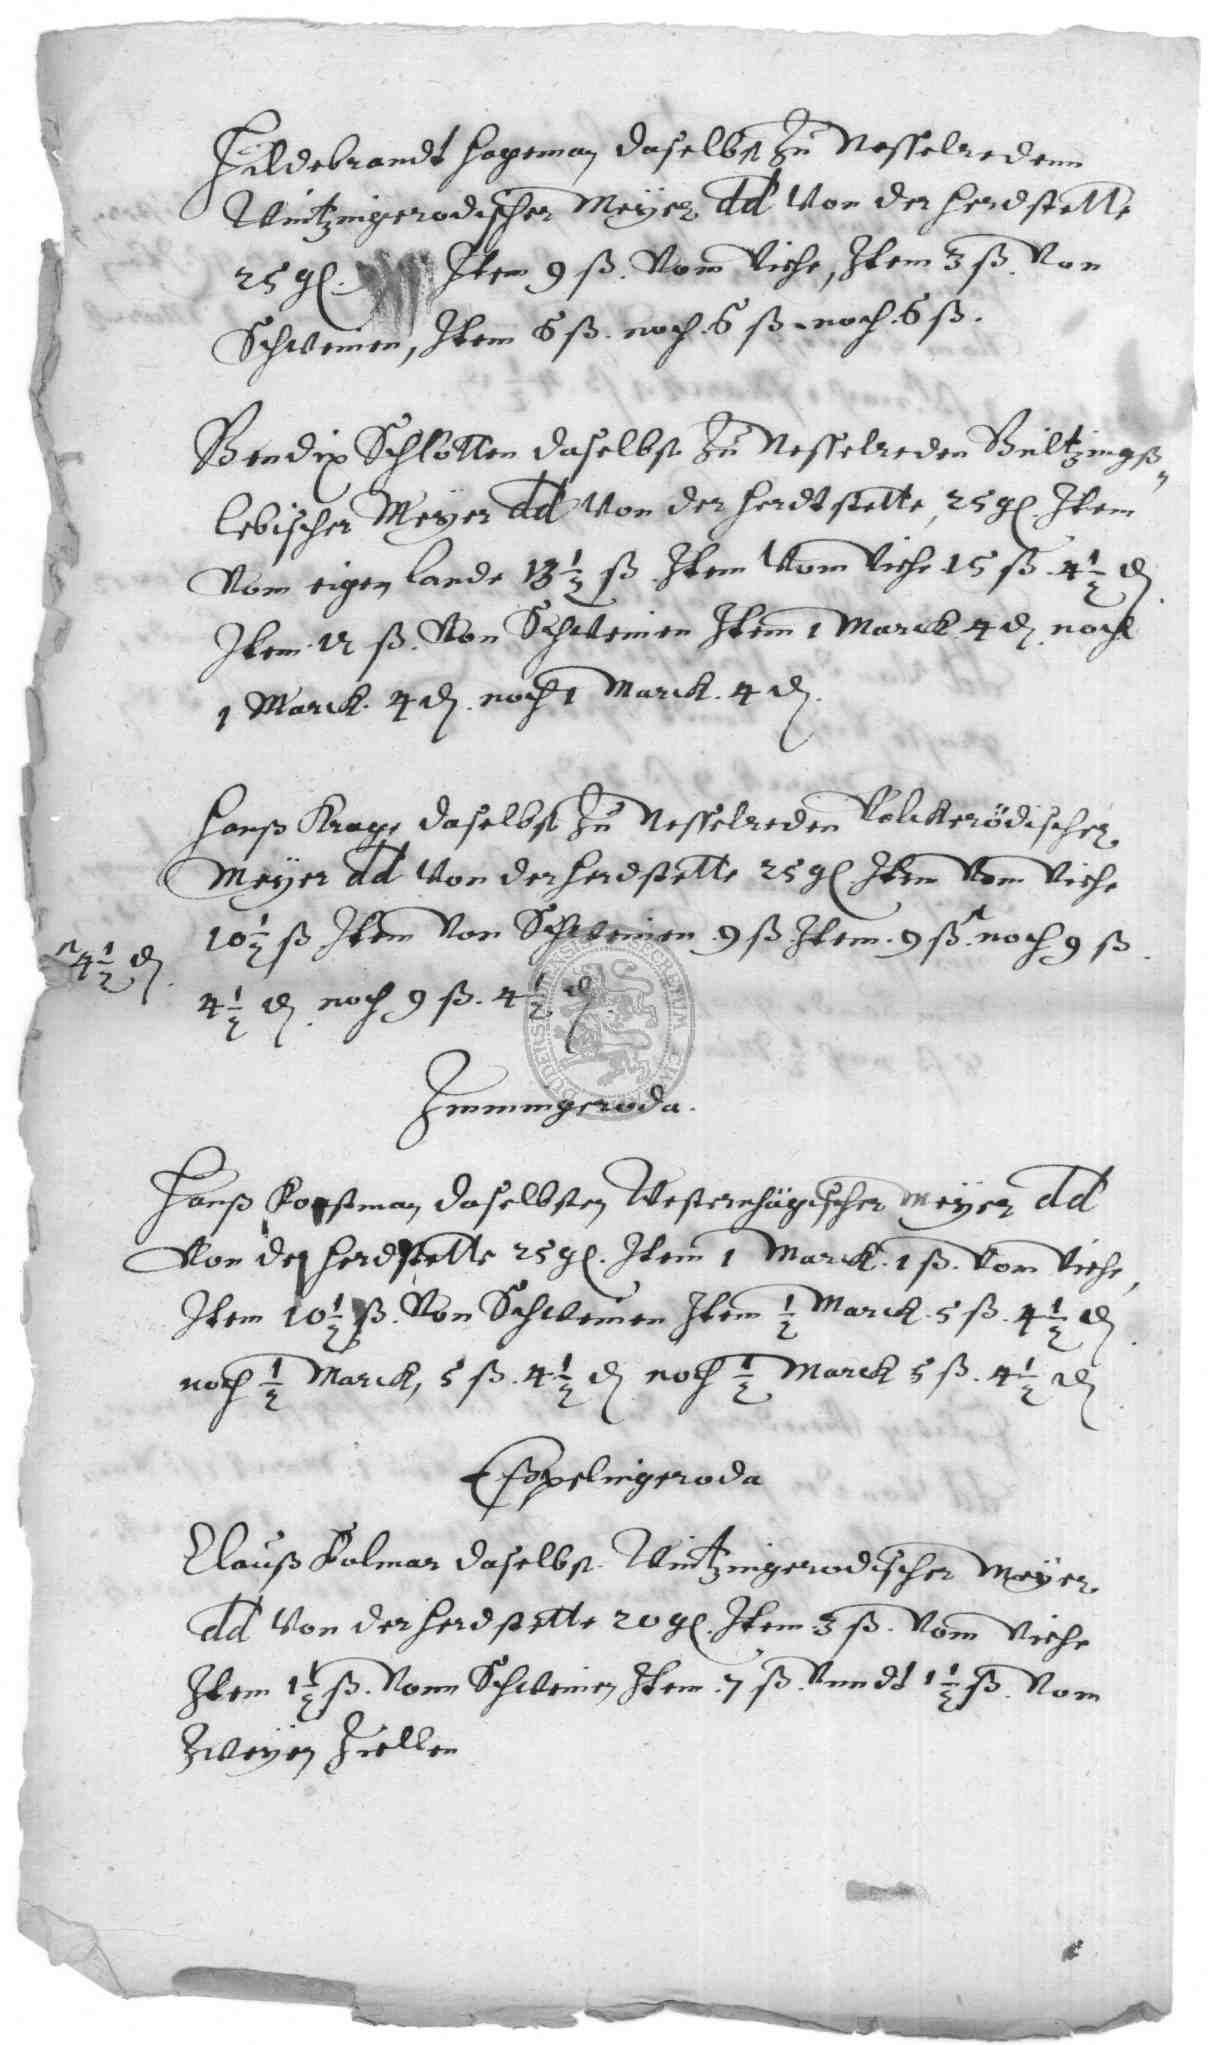 Hildebrandt Hageman daselbst zu Nesselredenn
Wintzingerodischer Meyer dd von der herdstette
25 gl. Item 9 ß. vom viehe, Item 3 ß. von
Schweinen, Item 6 ß. noch. 6 ß. noch. 6 ß.
Bendix Schlotten daselbst zu Nesselreden Bültzingß„
lebischer Meyer dd von der herdtstette, 25 gl. Item
vom eigen lande 13 1/2 ß. Item vom viehe 15 ß. 4 1/2 d.
Item. 12 ß. von Schweinen Item 1 Marck 4 d. noch
1 Marck. 4 d. noch 1 Marck. 4 d.
Hanß Krage daselbst zu Nesselreden Volckerödischer
Meyer dd von der herdstette 25 gl. Item vom viehe
10 1/2 ß Item von Schweinen 9 ß Item. 9 ß. noch 9 ß.
4 1/2 d.
4 1/2 d. noch 9 ß. 4 1/2 d.
Immingeroda.
Hanß Kopstman daselbsten Westernhägischer Meyer dd
von der herdstette 25 gl. Item 1 Marck. 1 ß. vom viehe,
Item 10 1/2 ß. von Schweinen Item 1/2 Marck. 5 ß. 4 1/2 d.
noch 1/2 Marck, 5 ß. 4 1/2 d. noch 1/2 Marck 5 ß. 4 1/2 d.
Eßpelingeroda
Clauß Kolmar daselbst Wintzingerodischer Meyer
dd von der herdstette 20 gl. Item 3 ß. vom viehe
Item 1 1/2 ß. vonn Schweinen Item. 7 ß. vnndt 1 1/2 ß. vom
zweyen Zielen